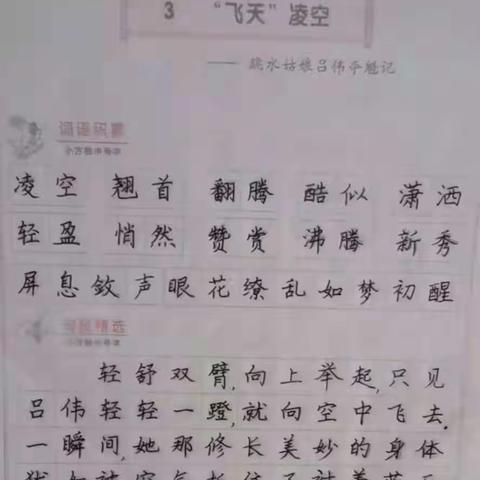 3 “飞天”凌空
—— 跳水姑娘吕伟夺魁记
词语积累
凌空 翘首 翻腾 酷似 潇洒
轻盈 悄然 赞赏 沸腾 新秀
屏息敛声眼花缭乱如梦初醒
精选
轻舒双臂,向上举起,只见
吕伟轻轻一蹬,就向空中飞去.
一瞬间,她那修长美妙的身体
犹如被空气托住了